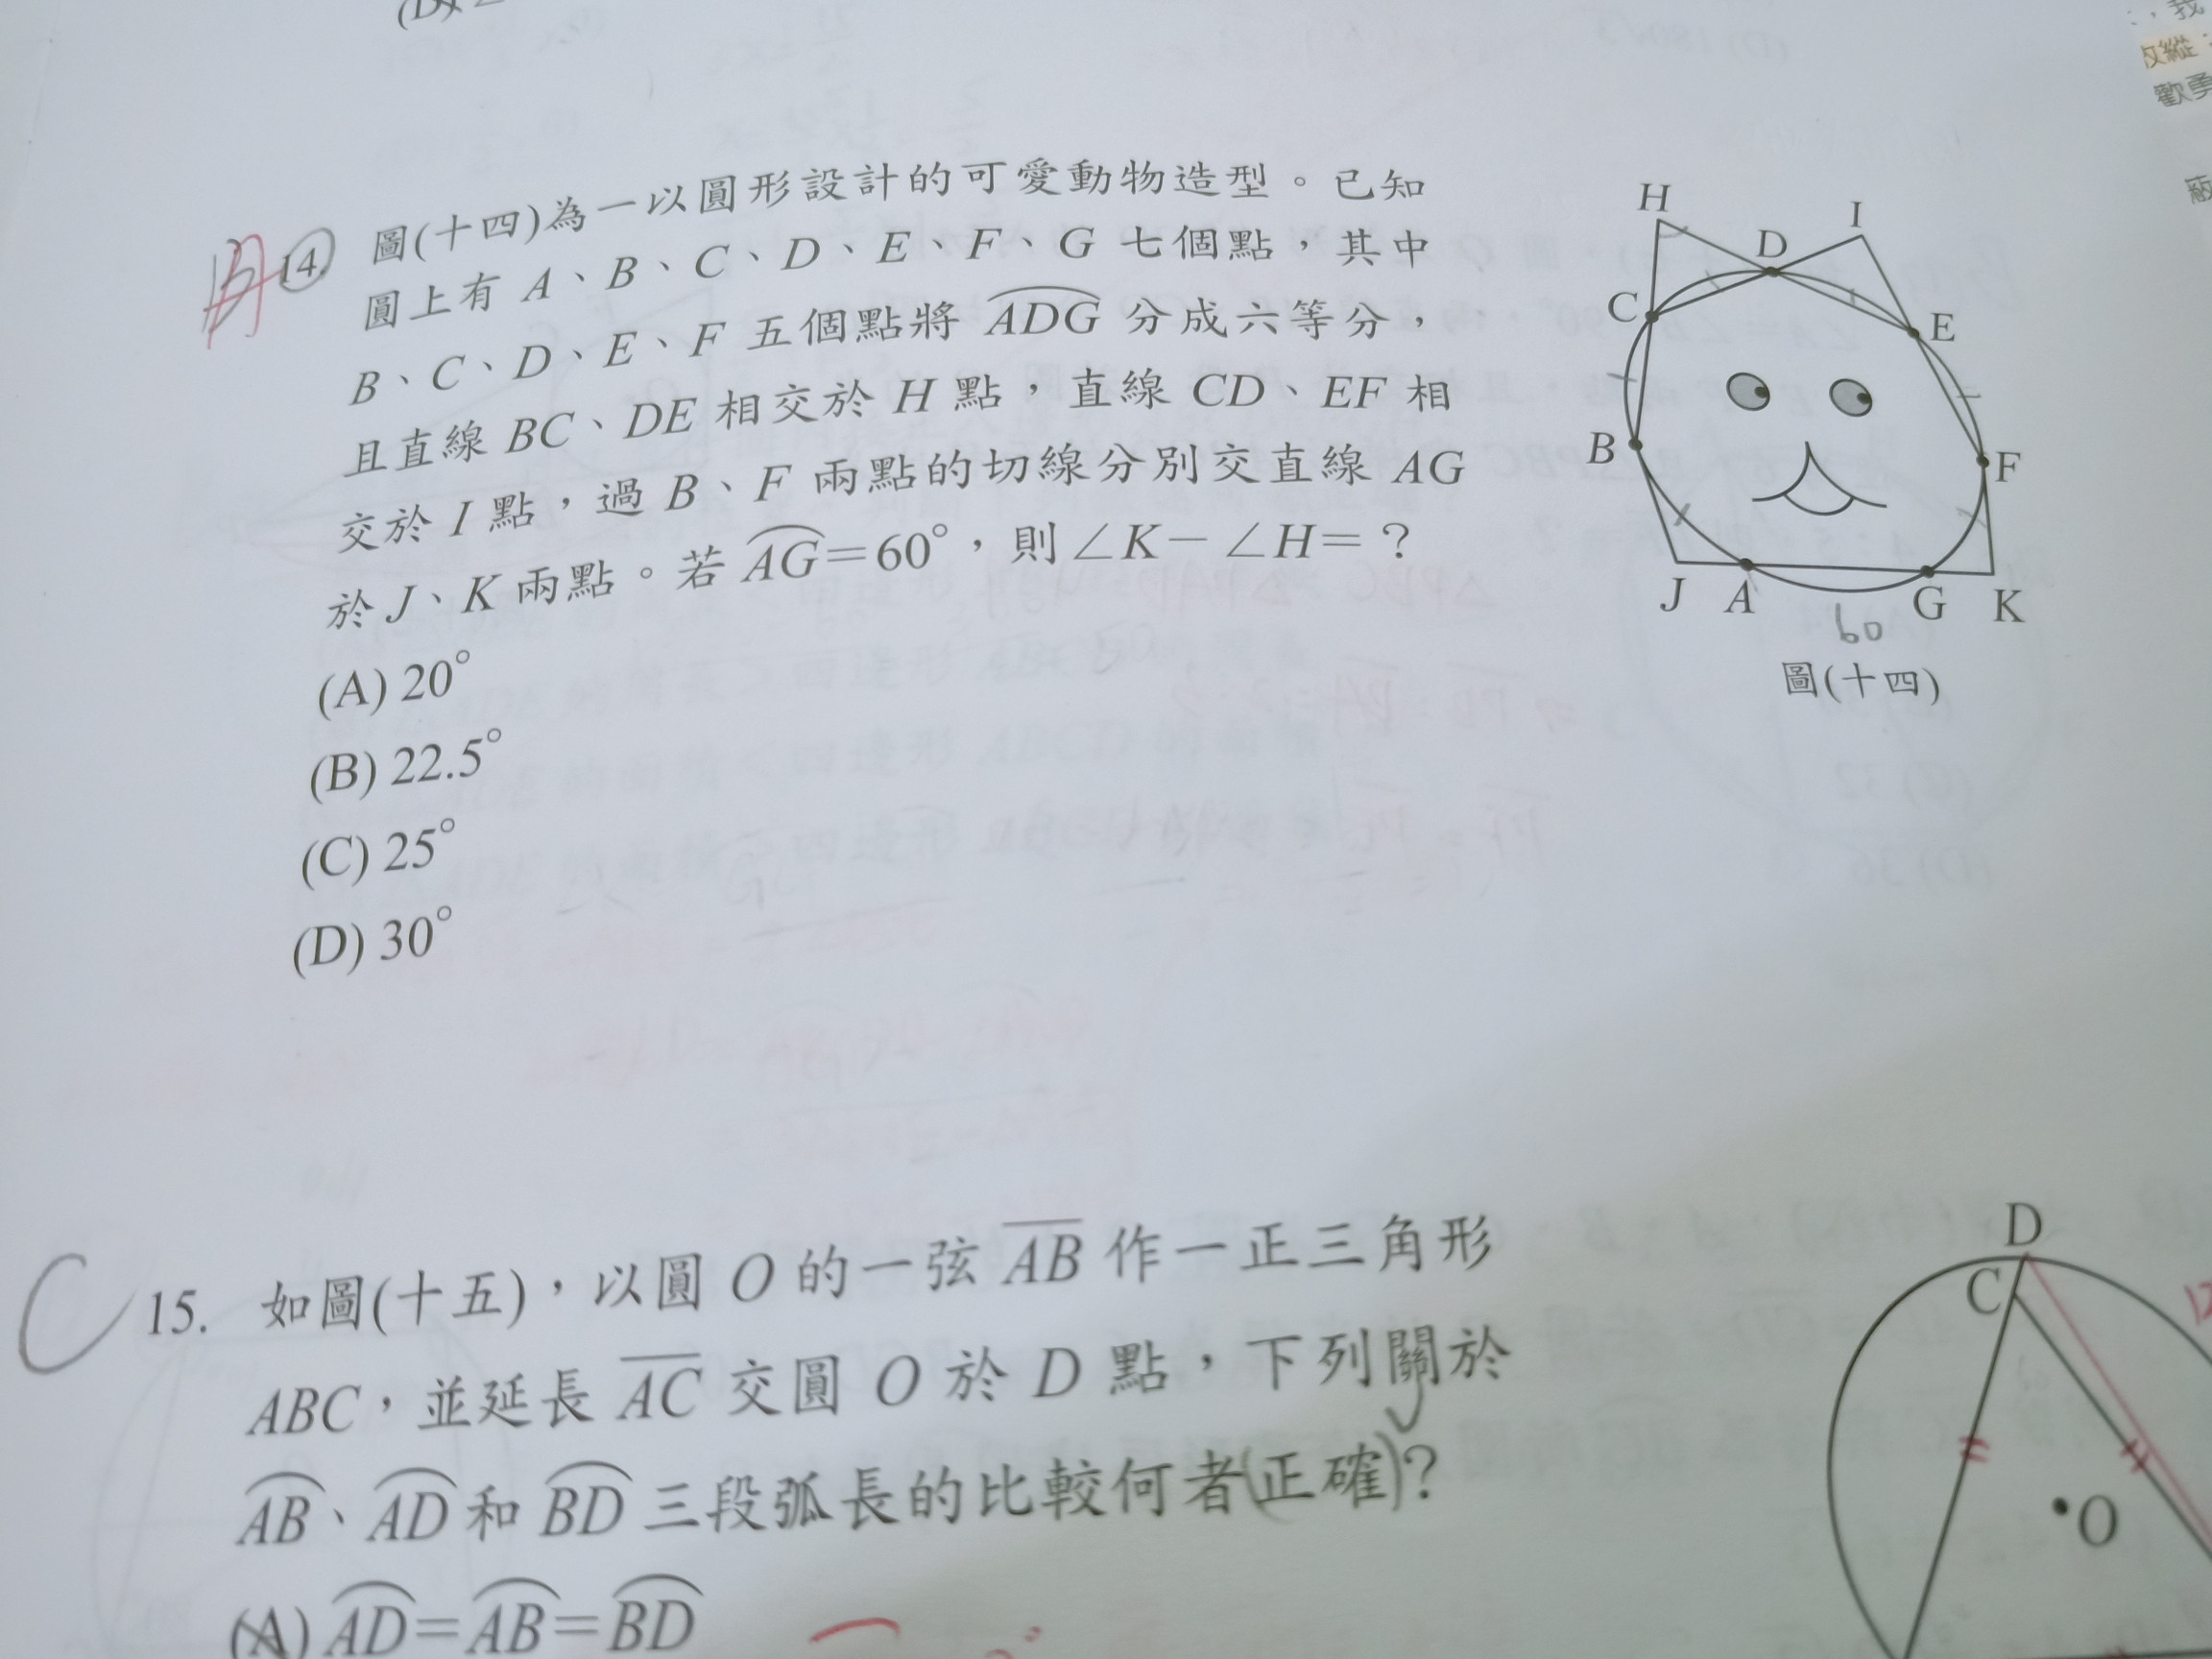 (D)
14. 圖(十四)為一以圓形設計的可愛動物造型。已知
圓上有 A、B、C、D、E、F、G 七個點，其中
B、C、D、E、F 五個點將 ADG 分成六等分，
且直線 BC、DE 相交於 H 點，直線 CD、EF 相
交於 I 點，過 B、F 兩點的切線分別交直線 AG
於 J、K 兩點。若 AG＝60°，則∠K－∠H＝？
(A) 20°
(B) 22.5°
(C) 25°
(D) 30°
H
I
D
C
E
B
F
J A G K
60
圖(十四)
C
15. 如圖(十五)，以圓 O 的一弦 AB 作一正三角形
ABC，並延長 AC 交圓 O 於 D 點，下列關於
AB、AD 和 BD 三段弧長的比較何者(正確)？
(A) AD＝AB＝BD
D
C
O
我
縱
歡勇